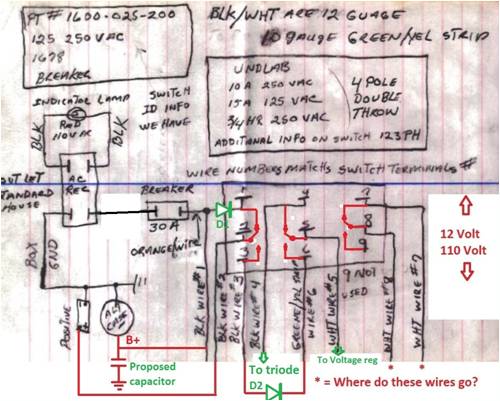 PT # 1600-025-200
125 250 VAC
1678
BREAKER
BLK/WHT ARE 12 GUAGE
10 gauge GREEN/YEL STRIP
INDICATOR LAMP
RED
110 VAC
BLK
BLK
SWITCH
ID INFO
WE HAVE
UND LAB
10A 250 VAC
15A 125 VAC
3/4 HP 250 VAC
ADDITIONAL INFO ON SWITCH 123PH
4 POLE
DOUBLE
THROW
WIRE NUMBERS MATCHS SWITCH TERMINALS #
OUTLET
STANDARD
HOUSE
AC
REC
BREAKER
30A
ORANGE/WIRE
BOX
GND
POSITIVE
B+
Proposed
capacitor
D1
7
8
9
12 Volt
110 Volt
BLK WIRE #1
BLK WIRE #2
BLK WIRE #3
BLK WIRE #4
GREENE/YEL STRIP
WIRE #6
WHT WIRE #5
9 NOT
USED
WHT WIRE #8
WHT WIRE #7
To triode
D2
To Voltage reg
* *
* = Where do these wires go?